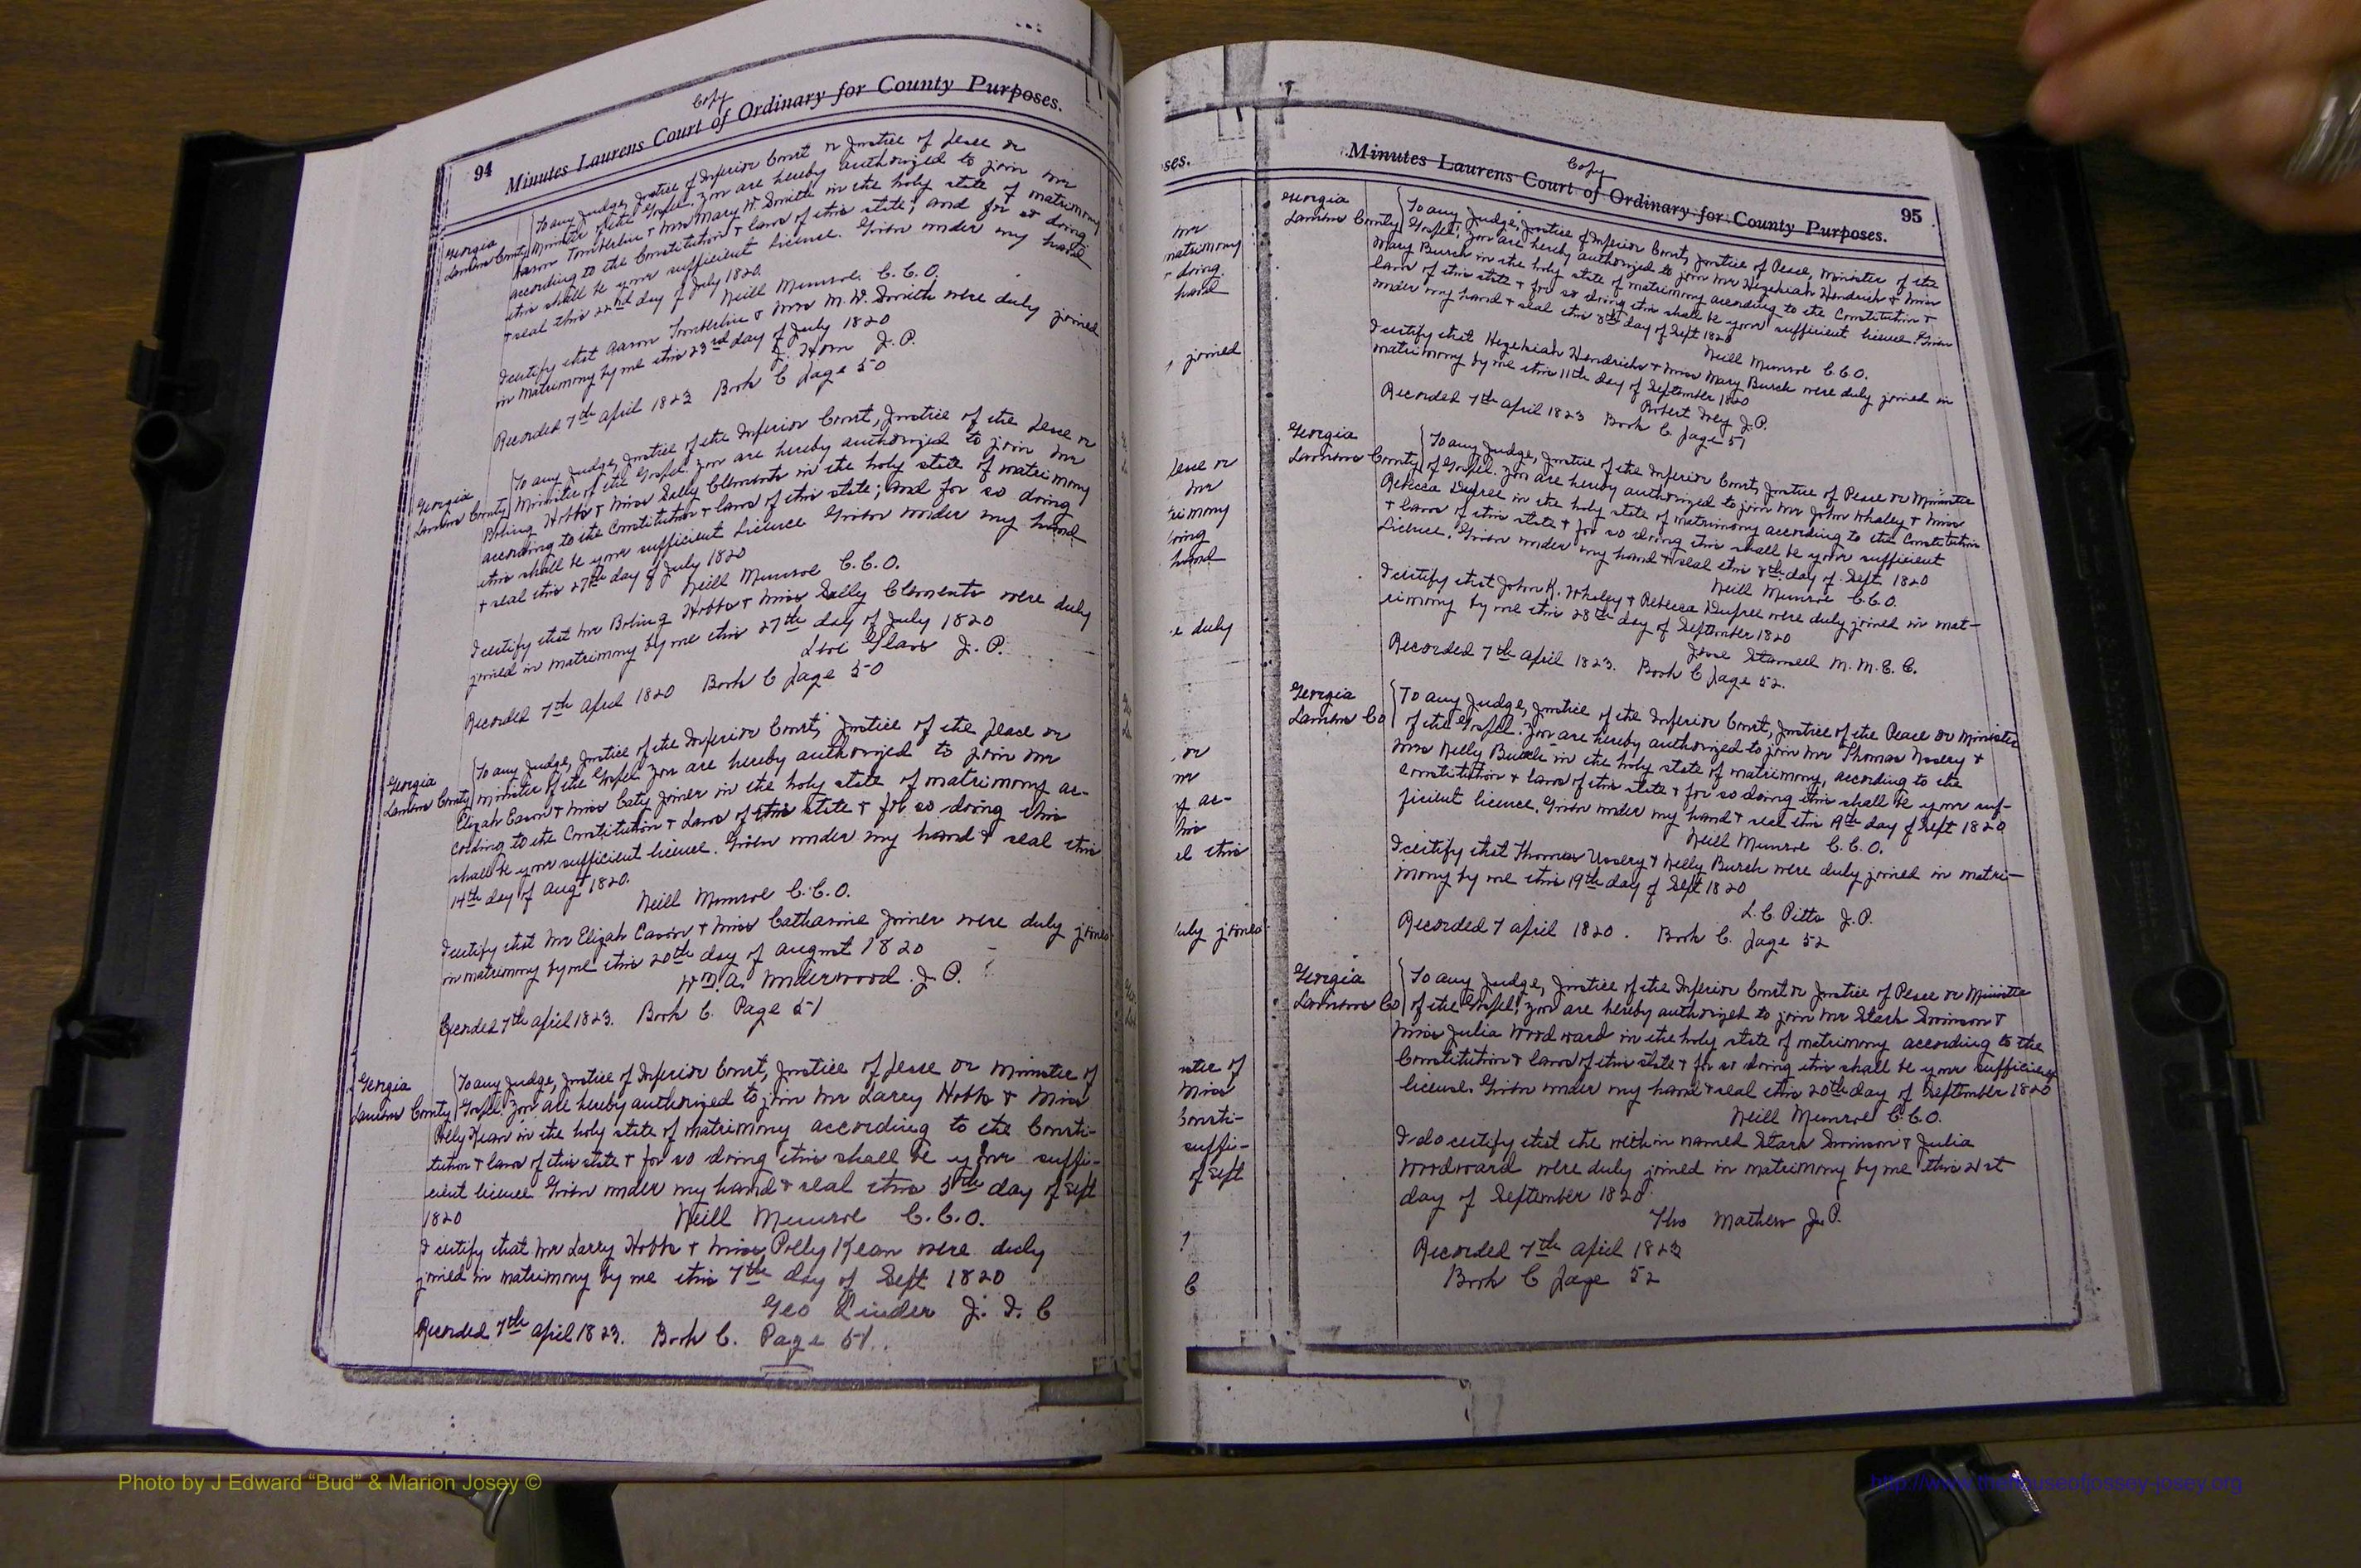 Copy
94 Minutes Laurens Court of Ordinary for County Purposes.
To any Judge, Justice of Inferior Court or Justice of Peace or
Georgia
Laurens County
Minister of the Gospel. You are hereby authorized to join Mr
Aaron Tomberlin & Mrs Mary W Smith in the holy state of matrimony
according to the Constitution & laws of this state; and for so doing
this shall be your sufficient licence. Given under my hand
& seal this 22nd day of July 1820.
Neill Munroe C.C.O.
I certify that Aaron Tomberlin & Mrs M.W. Smith were duly joined
in matrimony by me this 23rd day of July 1820
J. Horn J.P.
Recorded 7th April 1823 Book C page 50
Georgia
Laurens County
To any Judge, Justice of the Inferior Court, Justice of the Peace or
Minister of the Gospel. You are hereby authorized to join Mr
Boling Hobbs & Miss Sally Clements in the holy state of matrimony
according to the Constitution & laws of this state; and for so doing
this shall be your sufficient Licence Given under my hand
& seal this 27th day of July 1820
Neill Munroe C.C.O.
I certify that Mr Boling Hobbs & Miss Sally Clements were duly
joined in matrimony by me this 27th day of July 1820
J.P.
Recorded 7th April 1820 Book C page 50
Georgia
Laurens County
To any Judge, Justice of the Inferior Court, Justice of the Peace or
Minister of the Gospel You are hereby authorized to join Mr
Elijah Eason & Miss Caty Joiner in the holy state of matrimony ac-
cording to the Constitution & Laws of this state & for so doing this
shall be your sufficient licence. Given under my hand & seal this
14th day of Augt 1820.
Neill Munroe C.C.O.
I certify that Mr Elijah Eason & Miss Catharine Joiner were duly joined
in matrimony by me this 20th day of August 1820
Wm. A. Underwood. J.P.
Recorded 7th April 1823. Book C. Page 51
Georgia
Laurens County
To any Judge, Justice of Inferior Court, Justice of Peace or Minister of
Gospel. You are hereby authorized to join Mr Larry Hobbs & Miss
Polly Kean in the holy state of matrimony according to the Consti-
tution & laws of this state & for so doing this shall be your suffi-
cient licence Given under my hand & seal this 5th day of Sept
1820 Neill Munroe C.C.O.
I certify that Mr Larry Hobbs & Miss Polly Kean were duly
joined in matrimony by me this 7th day of Sept 1820
Geo Linder J. I. C
Recorded 7th April 1823. Book C. Page 51.
ses.
mr
matrimony
doing
hand
joined
Peace or
mr
rimony
oing
hand
e duly
or
mr
y ac-
his
al this
uly joined
ster of
Miss
Consti-
suffi-
of Sept
C
Copy
Minutes Laurens Court of Ordinary for County Purposes. 95
Georgia
Laurens County
To any Judge, Justice of Inferior Court, Justice of Peace, Minister of the
Gospel, You are hereby authorized to join Mr Hezekiah Hendrick & Miss
Mary Burch in the holy state of matrimony according to the Constitution &
laws of this state & for so doing this shall be your sufficient licence. Given
under my hand & seal this 8th day of Sept 1820
Neill Munroe C.C.O.
I certify that Hezekiah Hendricks & Miss Mary Burch were duly joined in
matrimony by me this 11th day of September 1820
Robert J.P.
Recorded 7th April 1823 Book C. page 51
Georgia
Laurens County
To any Judge, Justice of the Inferior Court, Justice of Peace or Minister
of Gospel. You are hereby authorized to join Mr John Whaley & Miss
Rebecca Dupree in the holy state of matrimony according to the Constitution
& laws of this state & for so doing this shall be your sufficient
Licence. Given under my hand & seal this 8th day of Sept. 1820
Neill Munroe C.C.O.
I certify that John K. Whaley & Rebecca Dupree were duly joined in mat-
rimony by me this 28th day of September 1820
M.M.E.C.
Recorded 7th April 1823. Book C page 52.
Georgia
Laurens Co
To any Judge, Justice of the Inferior Court, Justice of the Peace or Minister
of the Gospel. You are hereby authorized to join Mr Thomas Ussery &
Miss Nelly Burch in the holy state of matrimony, according to the
Constitution & laws of this state & for so doing this shall be your suf-
ficient licence. Given under my hand & seal this 19th day of Sept 1820
Neill Munroe C.C.O.
I certify that Thomas Ussery & Nelly Burch were duly joined in matri-
mony by me this 19th day of Sept 1820
L.C. Pitts J.P.
Recorded 7 April 1820. Book C. page 52
Georgia
Laurens Co
To any Judge, Justice of the Inferior Court or Justice of Peace or Minister
of the Gospel, You are hereby authorized to join Mr Stark Swinson &
Miss Julia Woodward in the holy state of matrimony according to the
Constitution & laws of this state & for so doing this shall be your sufficient
licence. Given under my hand & seal this 20th day of September 1820
Neill Munroe C.C.O.
I do certify that the within named Stark Swinson & Julia
Woodward were duly joined in matrimony by me this 21st
day of September 1820.
Tho Mathew J.P.
Recorded 7th April 1823
Book C page 52
Photo by J Edward “Bud” & Marion Josey ©
http://www.thehouseofjossey-josey.org